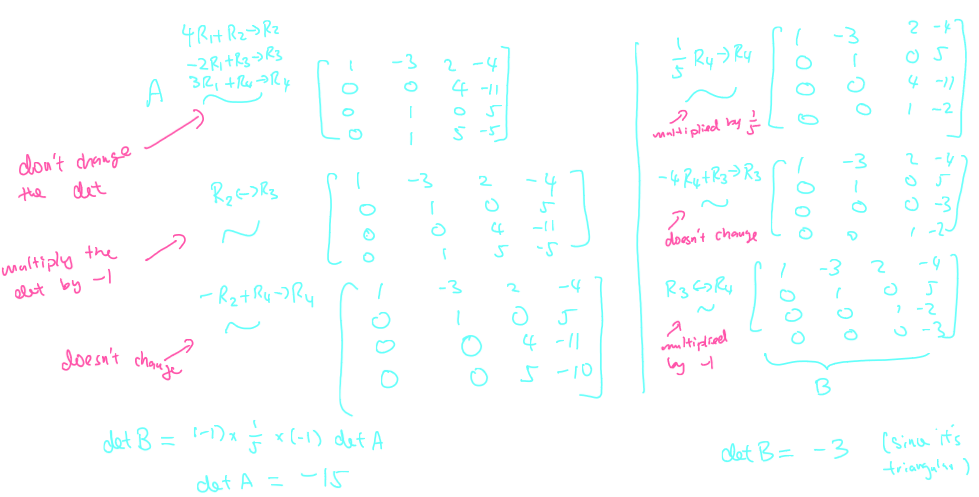 4R₁+R₂→R₂
-2R₁+R₃→R₃
A 3R₁+R₄→R₄
1 -3 2 -4
0 0 4 -11
0 1 0 5
0 1 5 -5
don't change
the det
R₂↔R₃
~
1 -3 2 -4
0 1 0 5
0 0 4 -11
0 1 5 -5
multiply the
det by -1
-R₂+R₄→R₄
~
1 -3 2 -4
0 1 0 5
0 0 4 -11
0 0 5 -10
doesn't change
det B = (-1) × 1/5 × (-1) det A
det A = -15
1/5 R₄→R₄
~
1 -3 2 -4
0 1 0 5
0 0 4 -11
0 0 1 -2
multiplied by 1/5
-4R₄+R₃→R₃
~
1 -3 2 -4
0 1 0 5
0 0 0 -3
0 0 1 -2
doesn't change
R₃↔R₄
~
1 -3 2 -4
0 1 0 5
0 0 1 -2
0 0 0 -3
multiplied
by -1
B
det B = -3 (since it's
triangular)